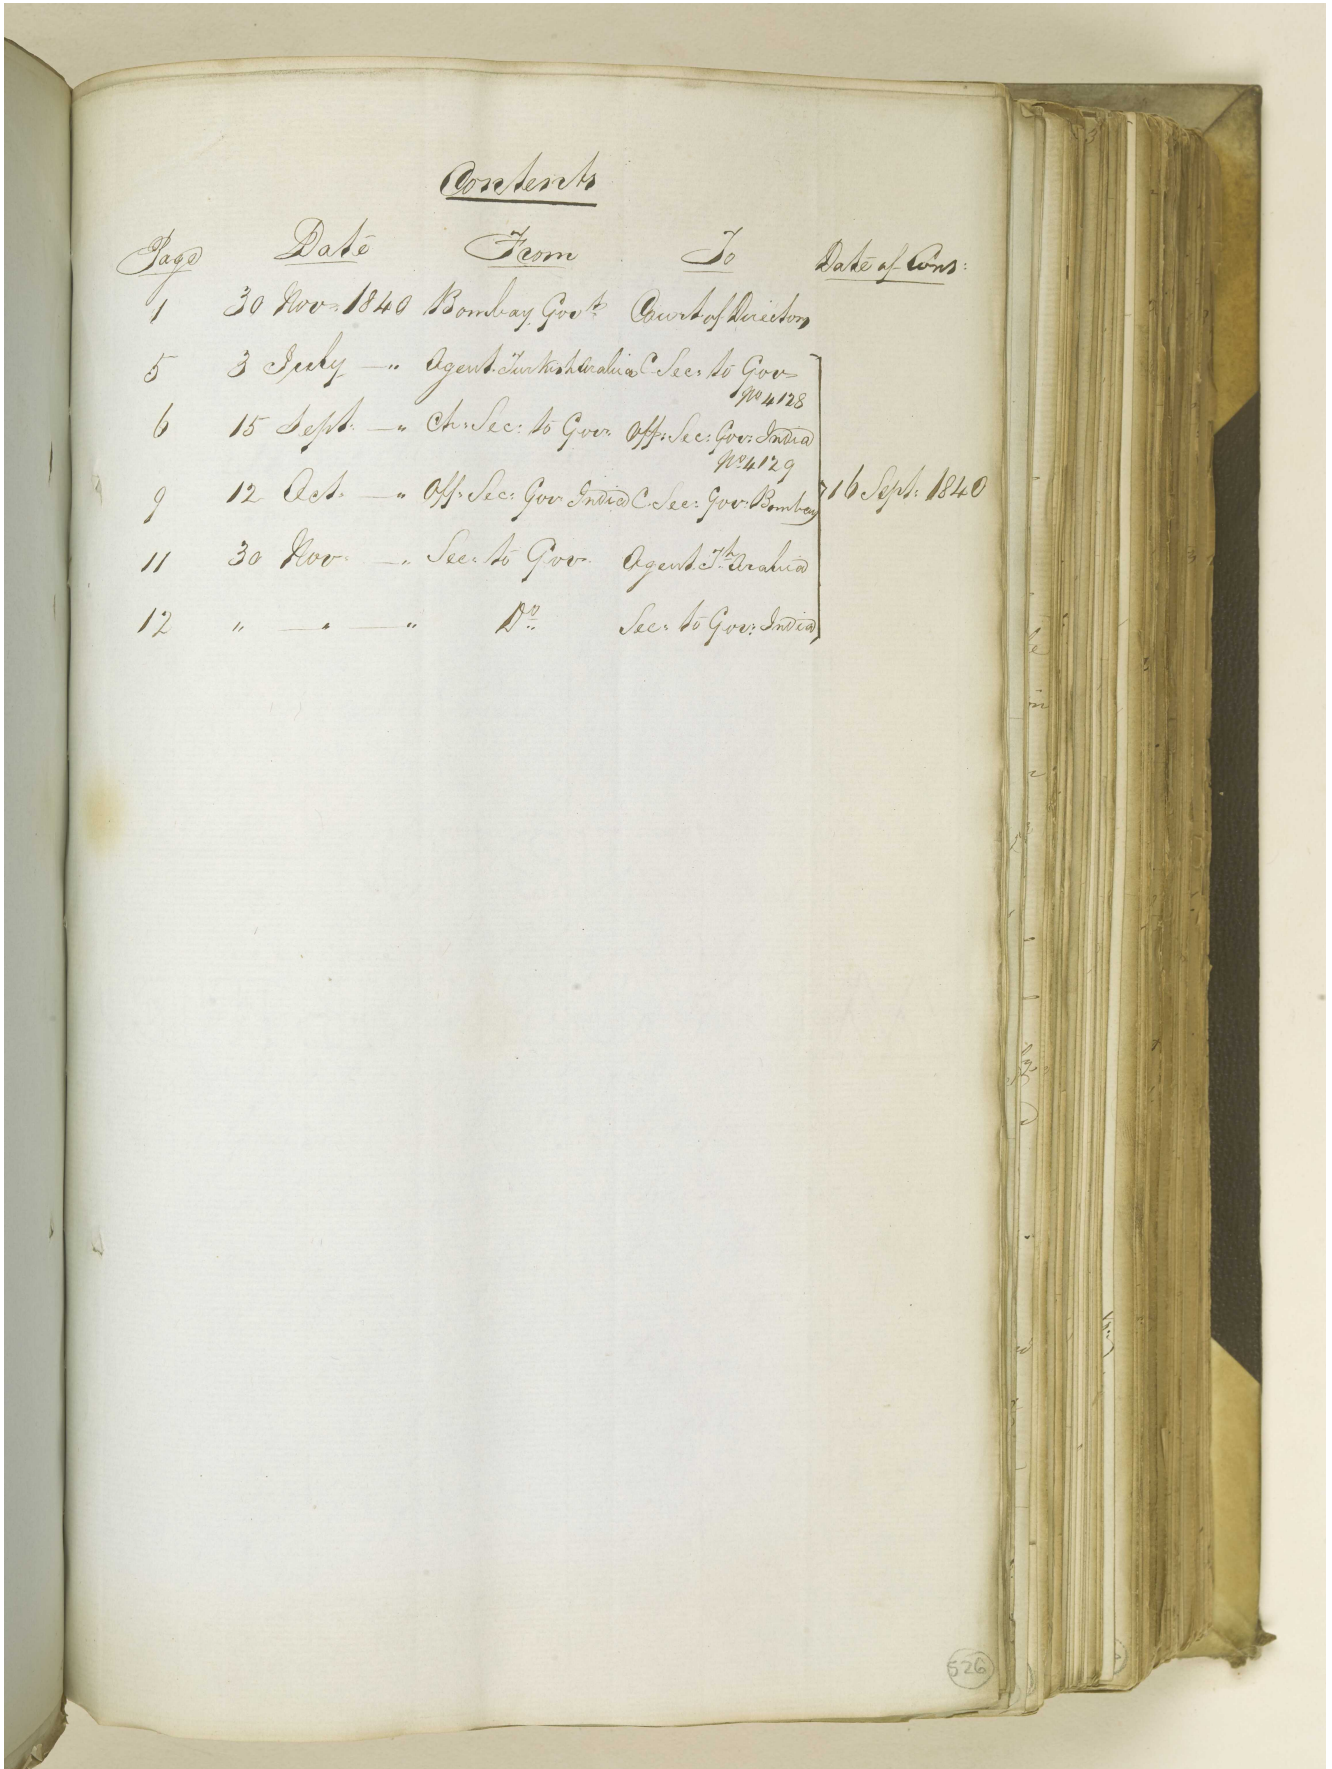 Contents
Page Date From To Date of Cons:
1 30 Nov: 1840 Bombay Govt. Court of Directors
5 3 July — " Agent Turkish Arabia C Sec: to Gov:
No 4128
6 15 Sept: — " Ch: Sec: to Gov: Off: Sec: Gov: India
No 4129
9 12 Oct. — " Off: Sec: Gov India C. Sec: Gov: Bombay 16 Sept: 1840
11 30 Nov: — " Sec: to Gov: Agent Th. Arabia
12 " — " — " Do Sec: to Gov: India
526